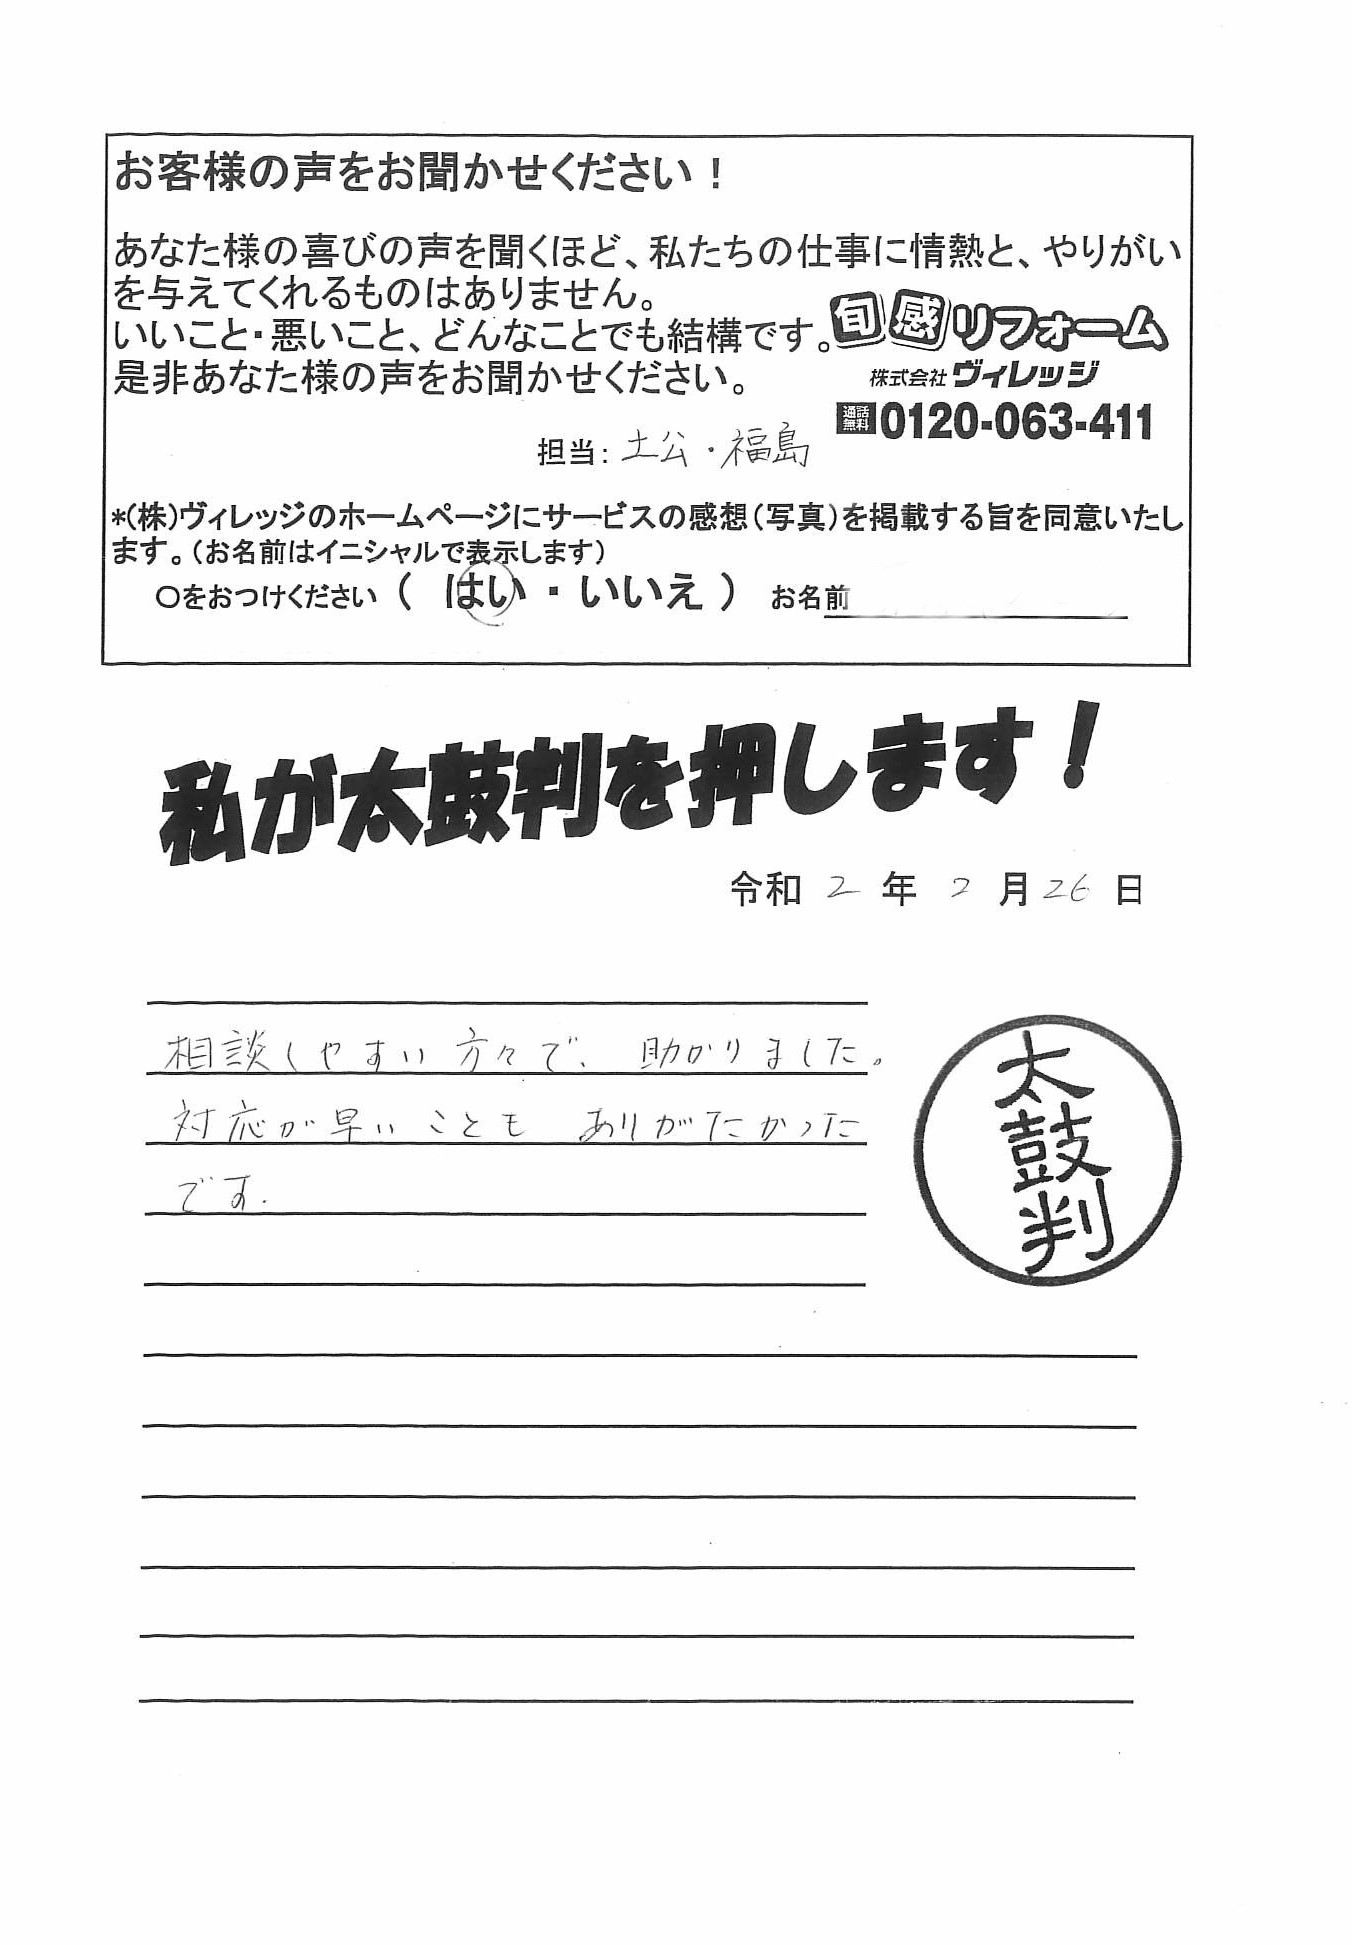 お客様の声をお聞かせください！
あなた様の喜びの声を聞くほど、私たちの仕事に情熱と、やりがい
を与えてくれるものはありません。
いいこと・悪いこと、どんなことでも結構です。
是非あなた様の声をお聞かせください。
旬感リフォーム
株式会社ヴィレッジ
通話無料 0120-063-411
担当: 土公・福島
*(株)ヴィレッジのホームページにサービスの感想(写真)を掲載する旨を同意いたし
ます。(お名前はイニシャルで表示します)
○をおつけください ( はい ・ いいえ ) お名前
私が太鼓判を押します！
令和 2 年 2 月 26 日
相談しやすい方々で、助かりました。
対応が早いことも ありがたかった
です.
太鼓判